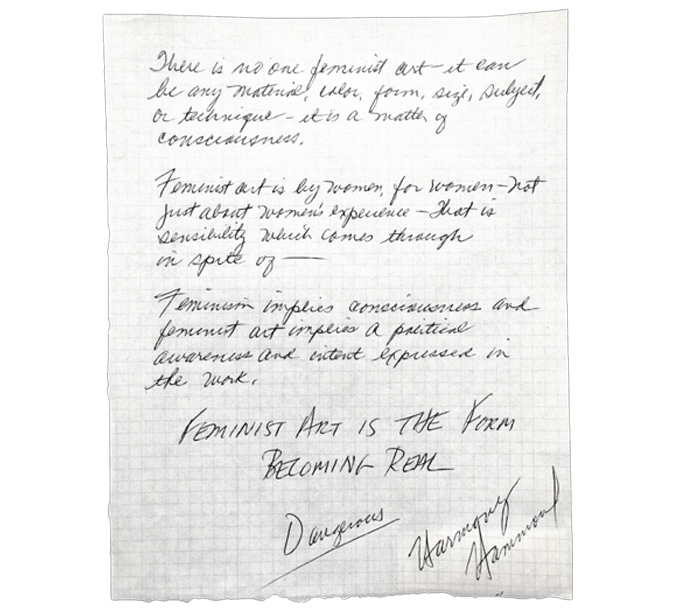 There is no one feminist art – it can
be any material, color, form, size, subject,
or technique – it is a matter of
consciousness.
Feminist art is by women, for women – not
just about women's experience – that is
sensibility which comes through
in spite of ——
Feminism implies consciousness and
feminist art implies a political
awareness and intent expressed in
the work.
FEMINIST ART IS THE FORM
BECOMING REAL
Dangerous
Harmony
Hammond